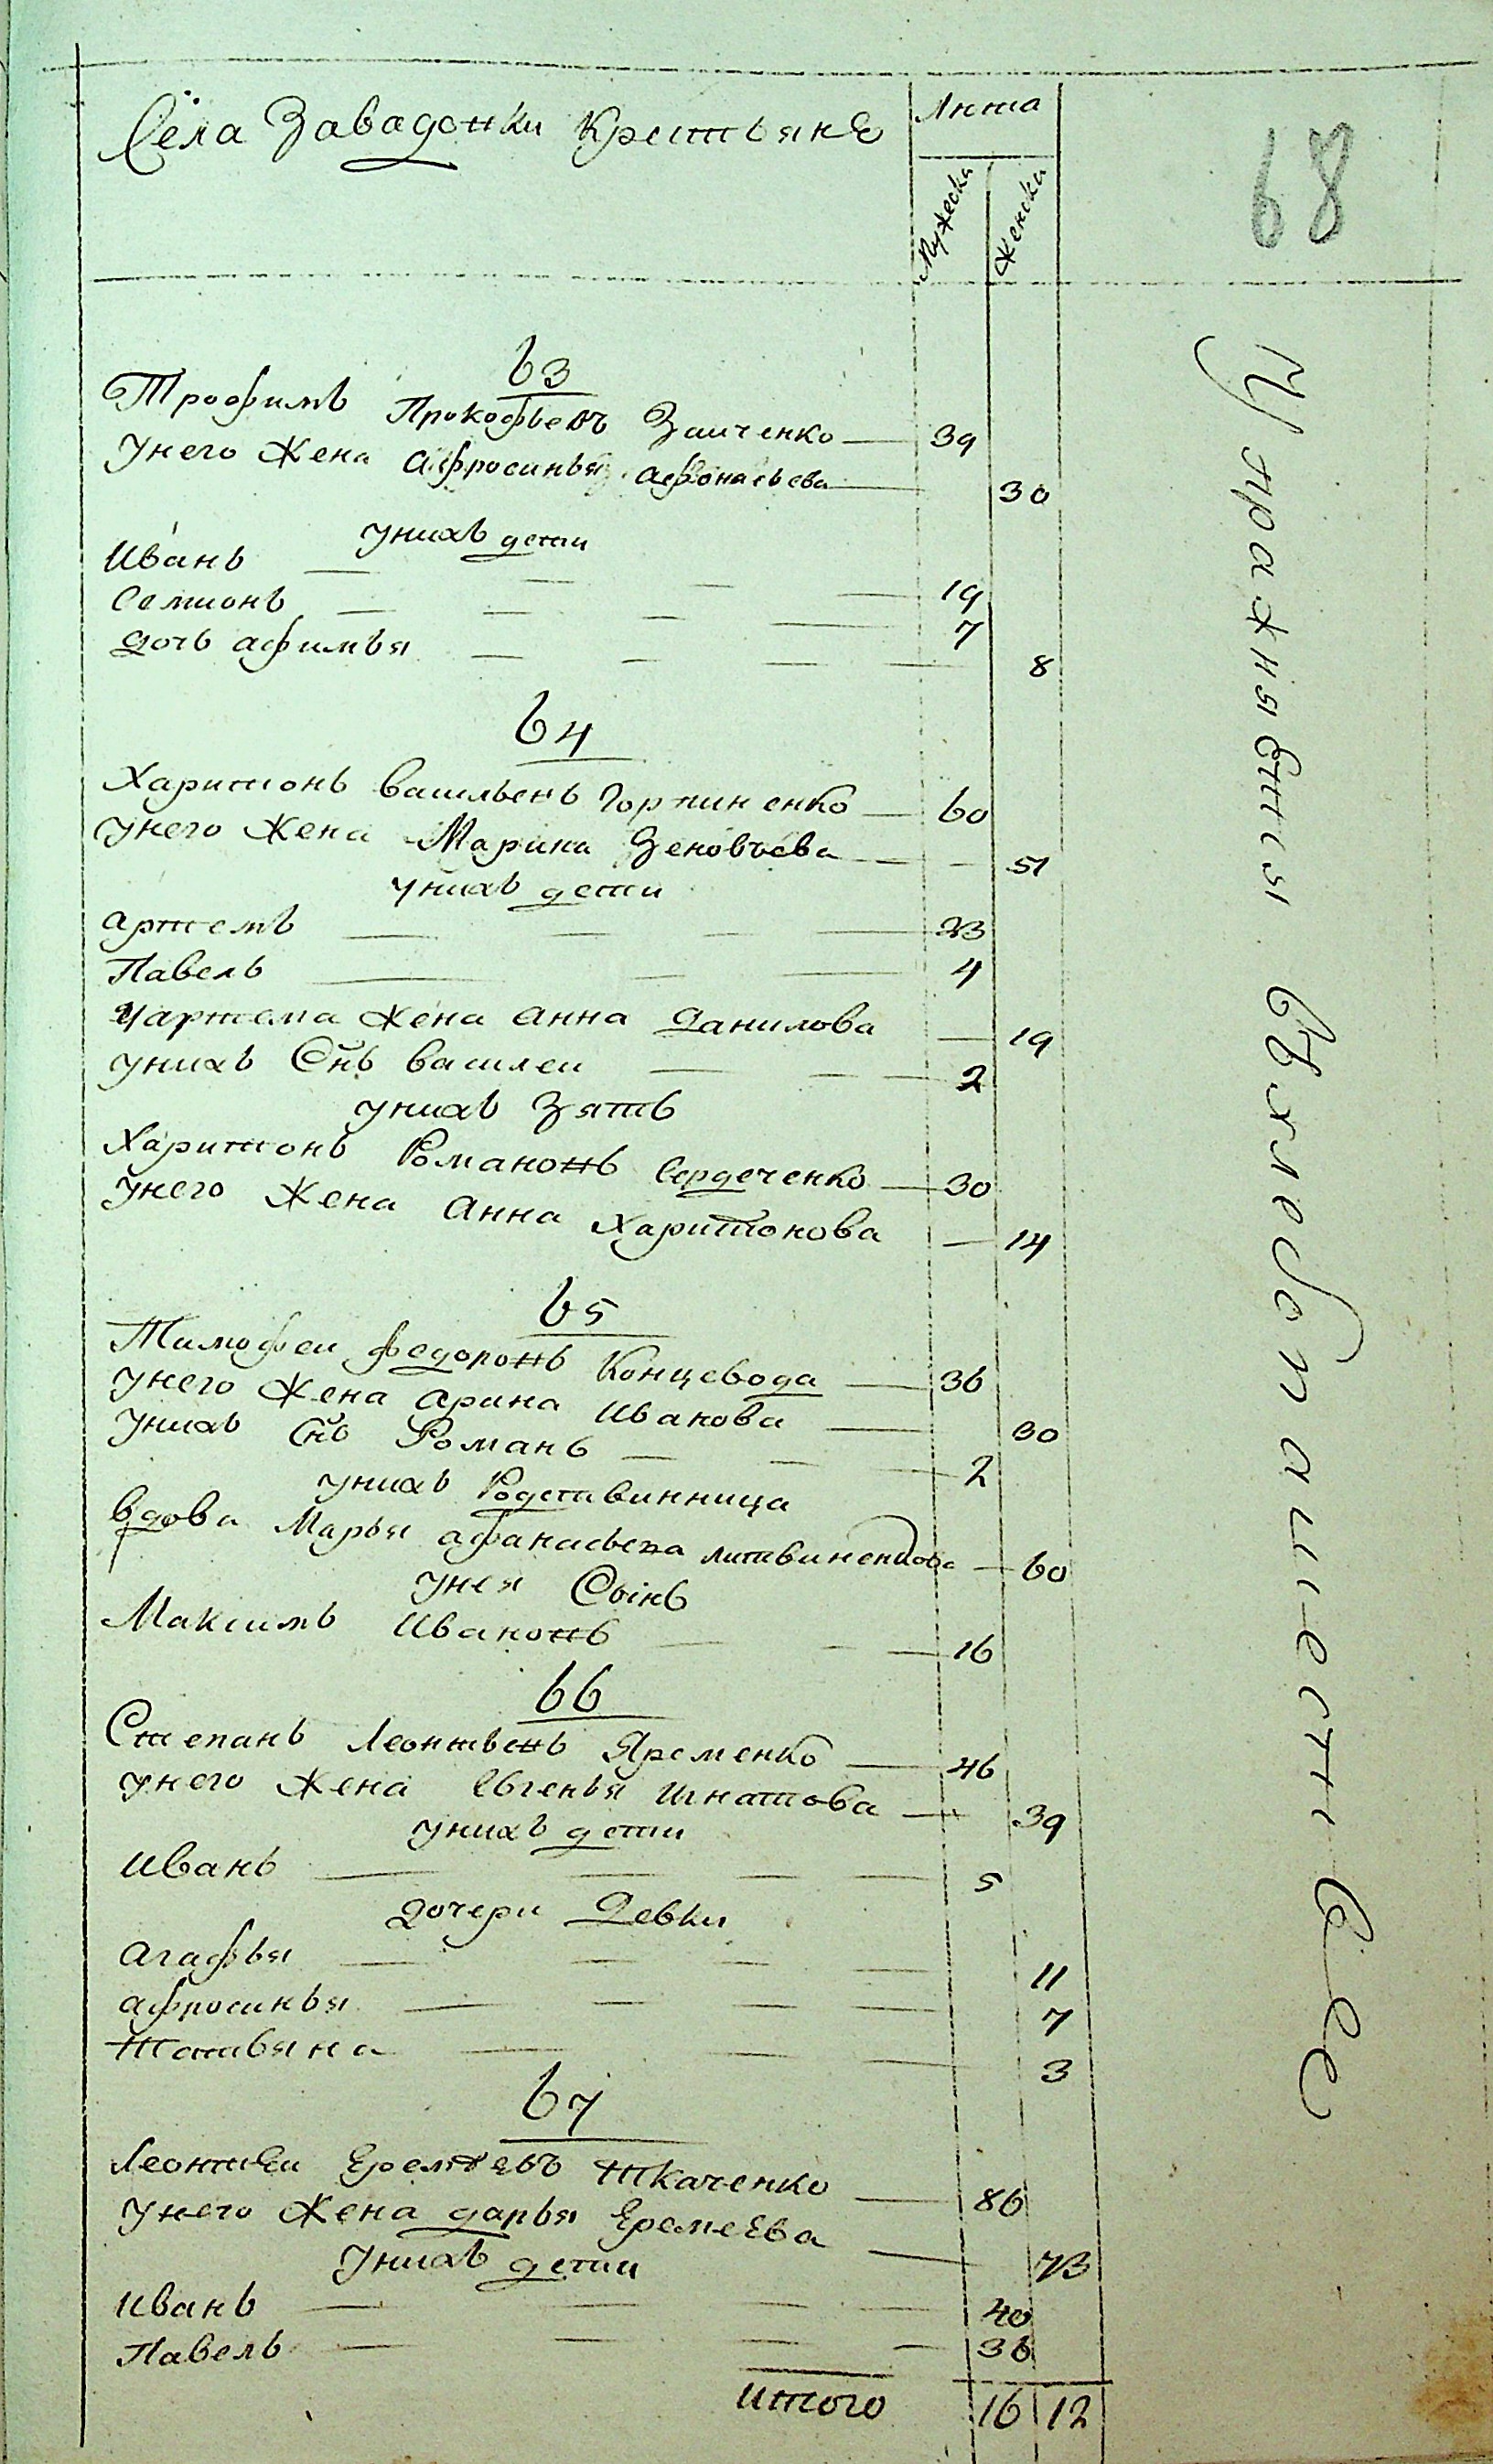 Села Завадонки Крестьяне
Лѣта
Мужеска
Женска
68
63
Трофимъ Прокофьевъ Заиченко — 39
унего Жена афросинья афонасьева — 30
унихъ дети
Иванъ — 19
Семионъ — 7
дочь афимья — 8
64
Харитонъ васильевъ Горпиненко — 60
унего Жена Марина Зеновъева — 51
унихъ дети
артемъ — 23
Павелъ — 4
уартема жена анна данилова — 19
унихъ Снъ василеи — 2
унихъ Зять
Харитонъ Романовъ Сердеченко — 30
унего Жена анна харитонова — 14
65
Тимофеи федоровъ Концевода — 36
унего Жена арина Иванова — 30
унихъ Снъ Романъ — 2
унихъ Родственница
вдова Марья афанасьева литвиненкова — 60
унея Сынъ
Максимъ Ивановъ — 16
66
Степанъ Леонтьевъ Яременко — 46
унего Жена Евгенья игнатова — 39
унихъ дети
иванъ — 5
дочери девки
агафья — 11
афросинья — 7
Татьяна — 3
67
Леонтеи Еремѣевъ Ткаченко — 86
унего Жена дарья Еремеева — 73
Унихъ дети
иванъ — 40
Павелъ — 36
итого 16 12